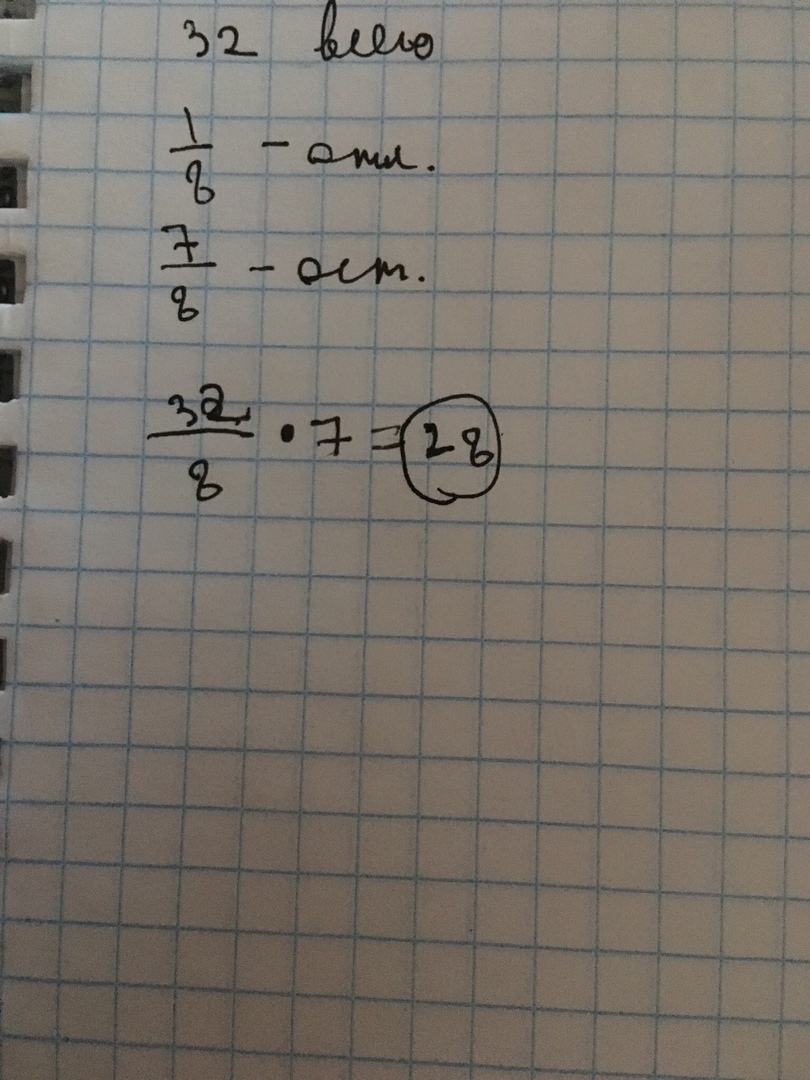 32 всего
1/8 - отл.
7/8 - ост.
32/8 • 7 = 28